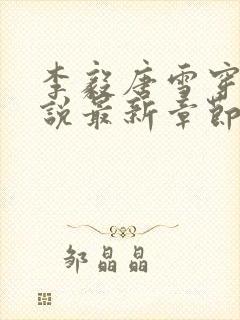 李毅唐雪穿
说最新章节
邹晶晶